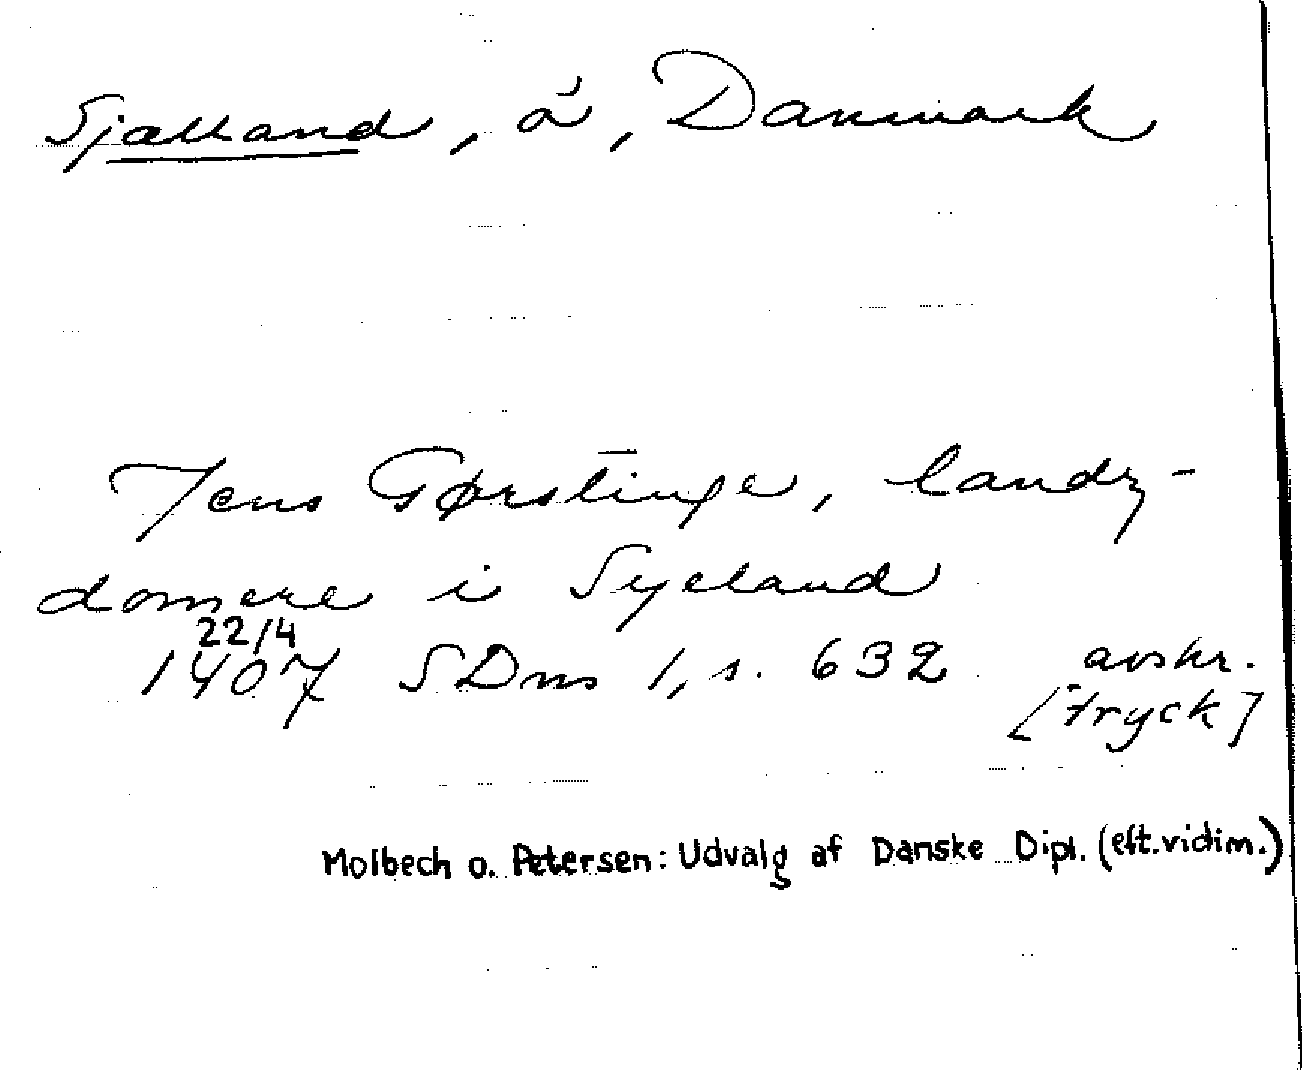 Sjælland, ö, Danmark
Jens Gørstinge, landz-
domere i Syeland
22/4
1407 SDns 1, s. 632 avskr.
[tryck]
Molbech o. Petersen: Udvalg af Danske Dipl. (eft. vidim.)